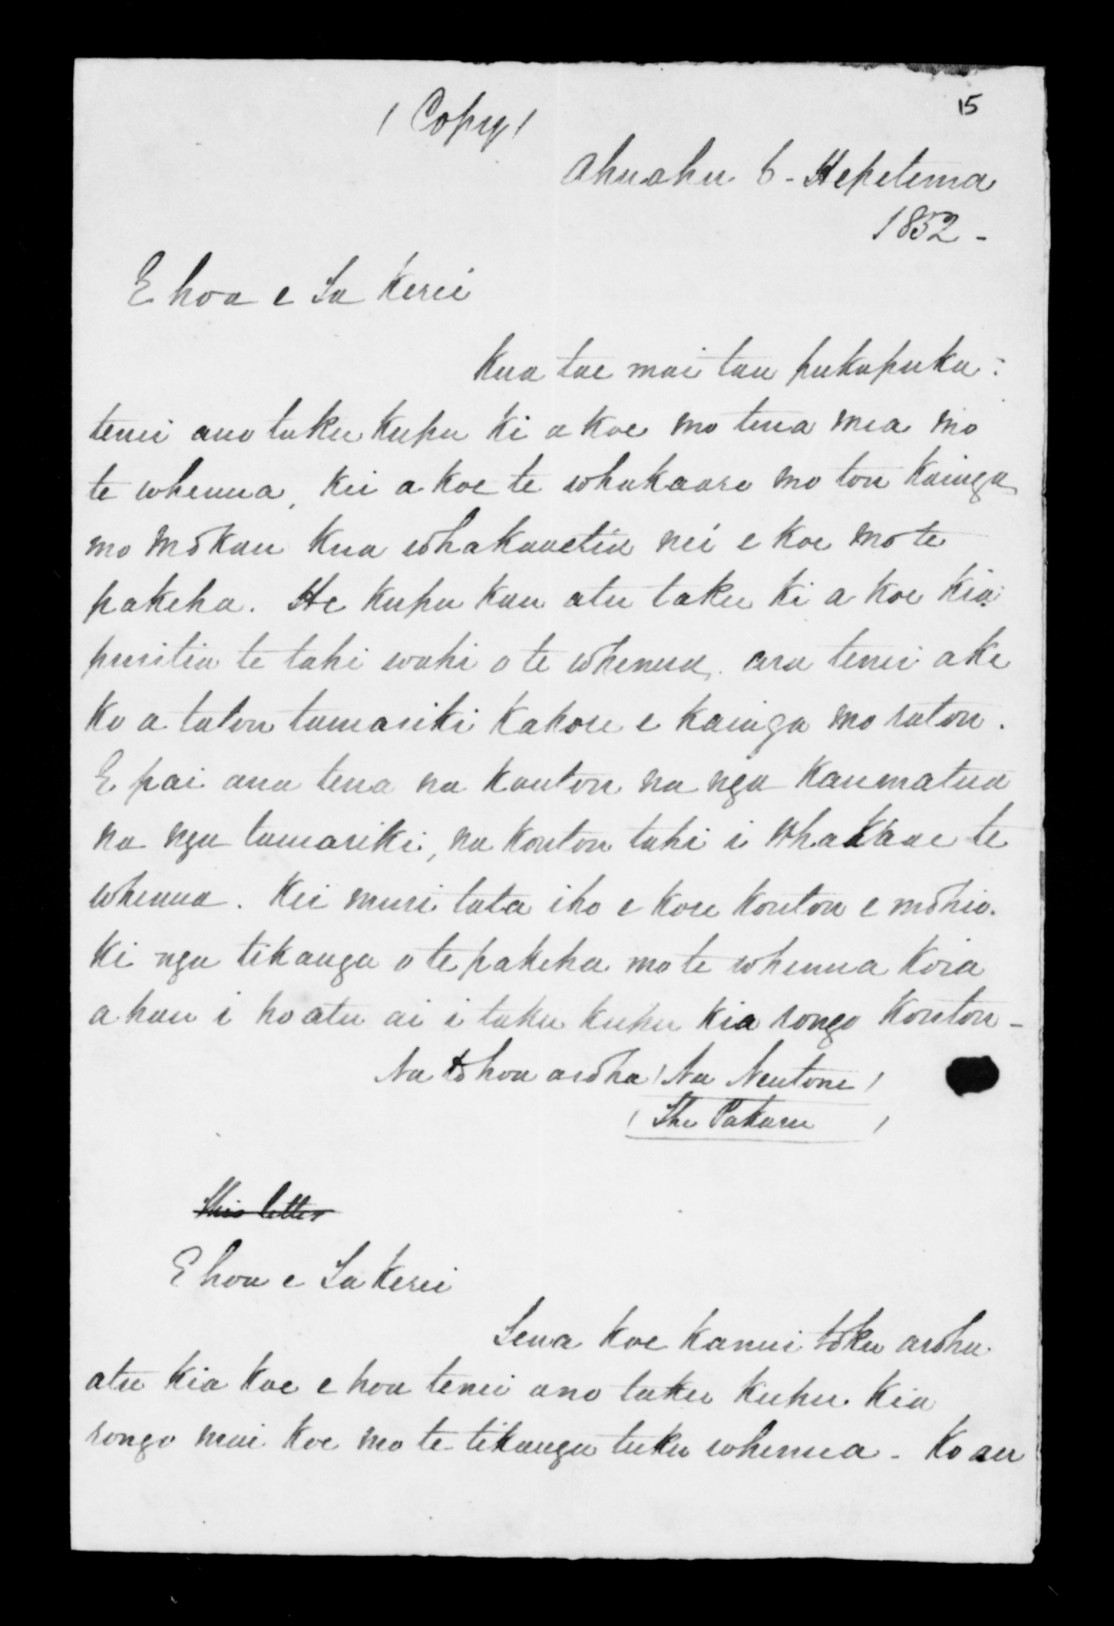 15
(Copy)
Ahuahu 6 - Hepetema
1852 -
E hoa e Ta Kerei
Kua tae mai tau pukapuka:
tenei ano taku kupu ki a koe mo tena mea mo
te whenua, kei a koe te whakaaro mo tou kainga
mo Mokau kua whakaaetia nei e koe mo te
pakeha. He kupu kau atu taku ki a koe kia
puritia te tahi wahi o te whenua, ara tenei ake
ko a tatou tamariki kahore e kainga mo ratou.
E pai ana tena na koutou na nga kaumatua
na nga tamariki, na koutou tahi i whakaae te
whenua. Kei muri tata iho e kore koutou e mohio
ki nga tikanga o te pakeha mo te whenua koia
ahau i hoatu ai i taku kupu kia rongo koutou -
Na to hoa aroha (Na Neutone)
(The Pakaru)
This letter
E hoa e Ta Kerei
Tena koe kanui toku aroha
atu kia koe e hoa tenei ano taku kupu kia
rongo mai koe mo te tikanga tuku whenua - Ko au